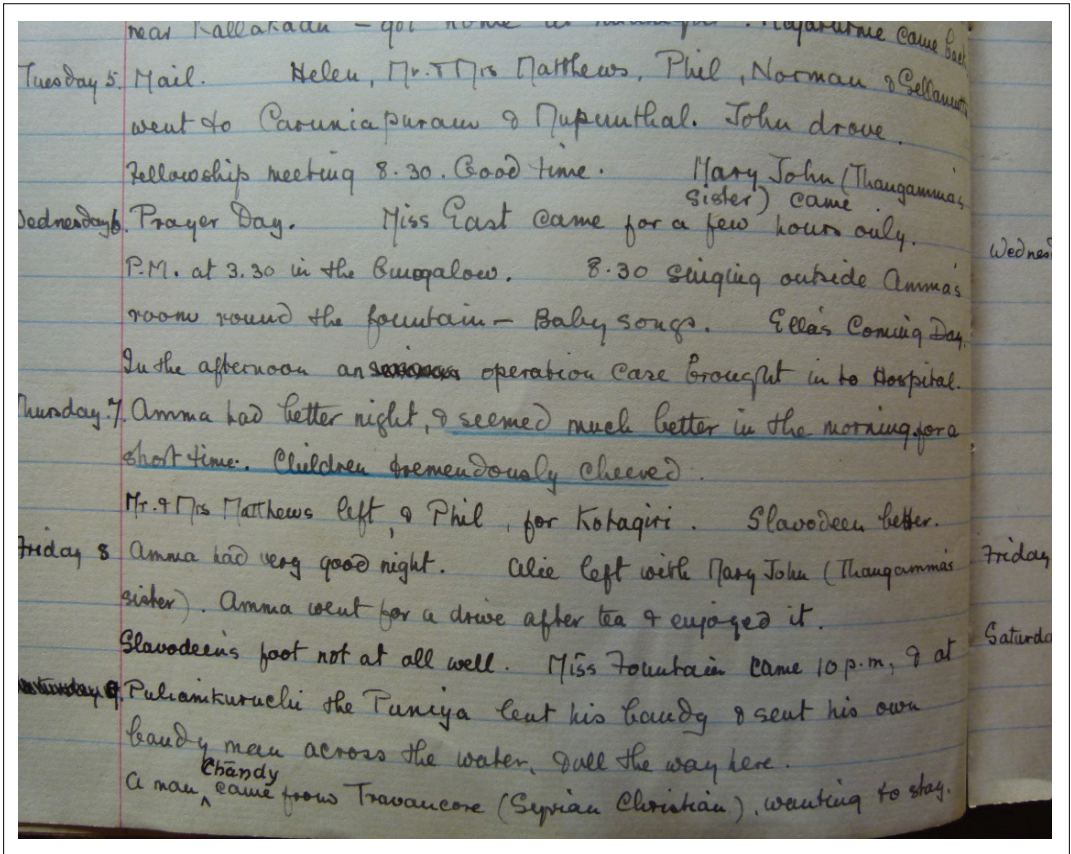 near Kallakadu – got home at came back
Tuesday 5. Mail. Helen, Mr. & Mrs Matthews, Phil, Norman & Sellamuttu
went to Caruniapuram & Mupunthal. John drove.
Fellowship meeting 8.30. Good time. Mary John (Thangamma's
sister) came.
Wednesday 6. Prayer Day. Miss East came for a few hours only.
P.M. at 3.30 in the Bungalow. 8.30 singing outside Amma's
room round the fountain – Baby songs. Ella's Coming Day.
In the afternoon an operation case brought in to Hospital.
Thursday 7. Amma had better night, & seemed much better in the morning, for a
short time. Children tremendously cheered.
Mr. & Mrs Matthews left, & Phil, for Kotagiri. Slavodeen better.
Friday 8 Amma had very good night. Alie left with Mary John (Thangamma's
sister). Amma went for a drive after tea & enjoyed it.
Slavodeen's foot not at all well. Miss Fountain came 10 p.m, & at
Puliamkuruchi the Puniya lent his bandy & sent his own
bandy man across the water, & all the way here.
Chandy
A man ^ came from Travancore (Syrian Christian), wanting to stay.
Wednes
Friday
Saturda